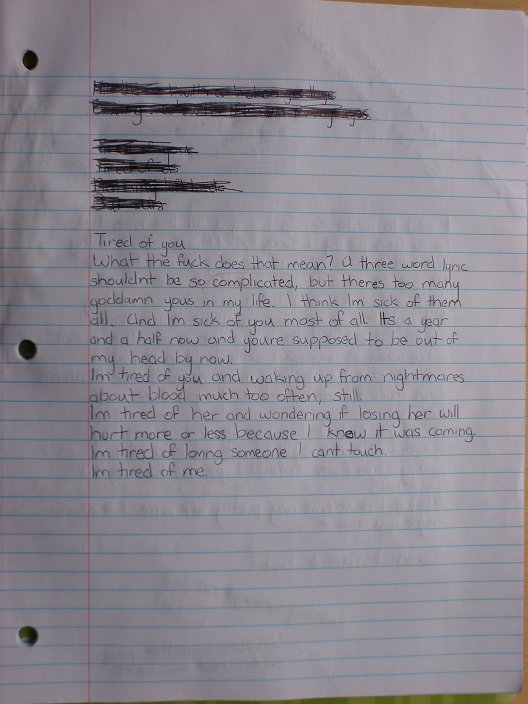 Tired of you
What the fuck does that mean? A three word lyric
shouldnt be so complicated, but theres too many
goddamn yous in my life. I think Im sick of them
all. And Im sick of you most of all. Its a year
and a half now and youre supposed to be out of
my head by now.
Im tired of you and waking up from nightmares
about blood much too often, still.
Im tired of her and wondering if losing her will
hurt more or less because I knew it was coming.
Im tired of loving someone I cant touch.
Im tired of me.